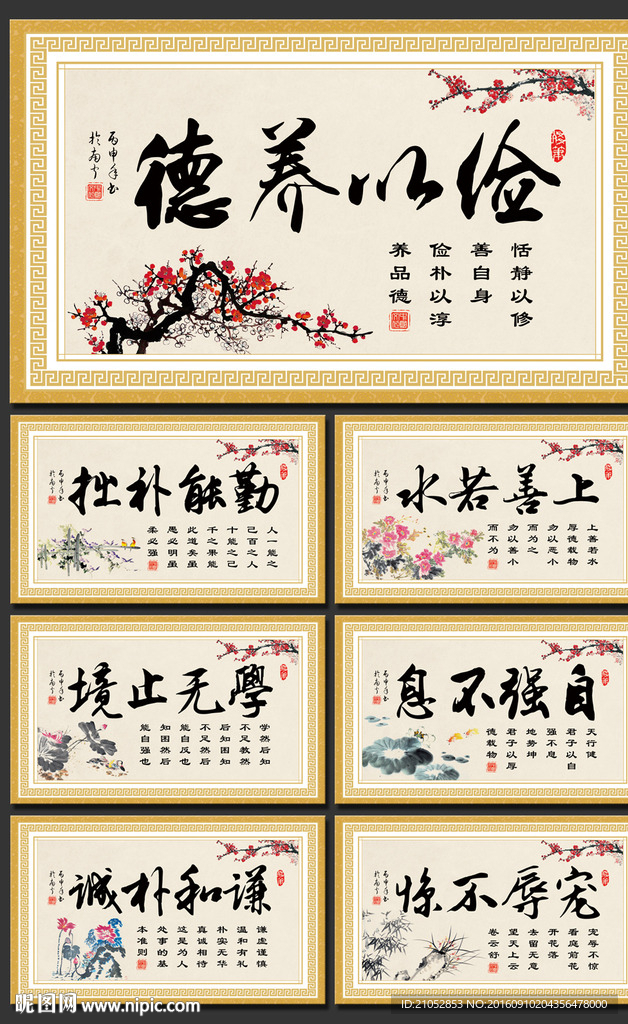 俭以养德
恬静以修
善自身
俭朴以淳
养品德
丙申年书
於南宁
勤能补拙
人一能之
己百之人
十能之己
千之果能
此道矣虽
愚必明虽
柔必强
丙申年书
於南宁
上善若水
上善若水
厚德载物
勿以恶小
而为之
勿以善小
而不为
丙申年书
於南宁
學无止境
学然后知
不足教然
后知困知
不足然后
能自反也
知困然后
能自强也
丙申年书
於南宁
自强不息
天行健
君子以自
强不息
地势坤
君子以厚
德载物
丙申年书
於南宁
谦和朴诚
谦虚谨慎
温和有礼
朴实无华
真诚相待
这是为人
处事的基
本准则
丙申年书
於南宁
宠辱不惊
宠辱不惊
看庭前花
开花落
去留无意
望天上云
卷云舒
丙申年书
於南宁
昵图网 www.nipic.com
ID:21052853 NO:20160910204356478000